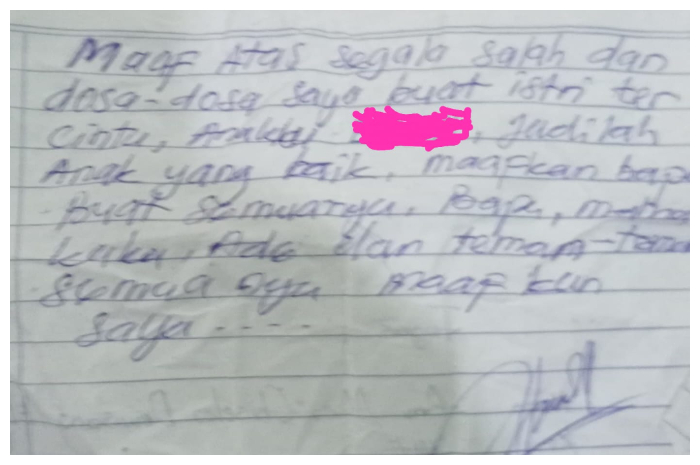 Maaf Atas segala salah dan
dosa-dosa saya buat istri ter
cinta, Anakku , Jadilah
Anak yang baik, maafkan bapa
Buat semuanya, Bapa, mama
kaka, Ade dan teman-tema
semua nya maaf kan
saya ....